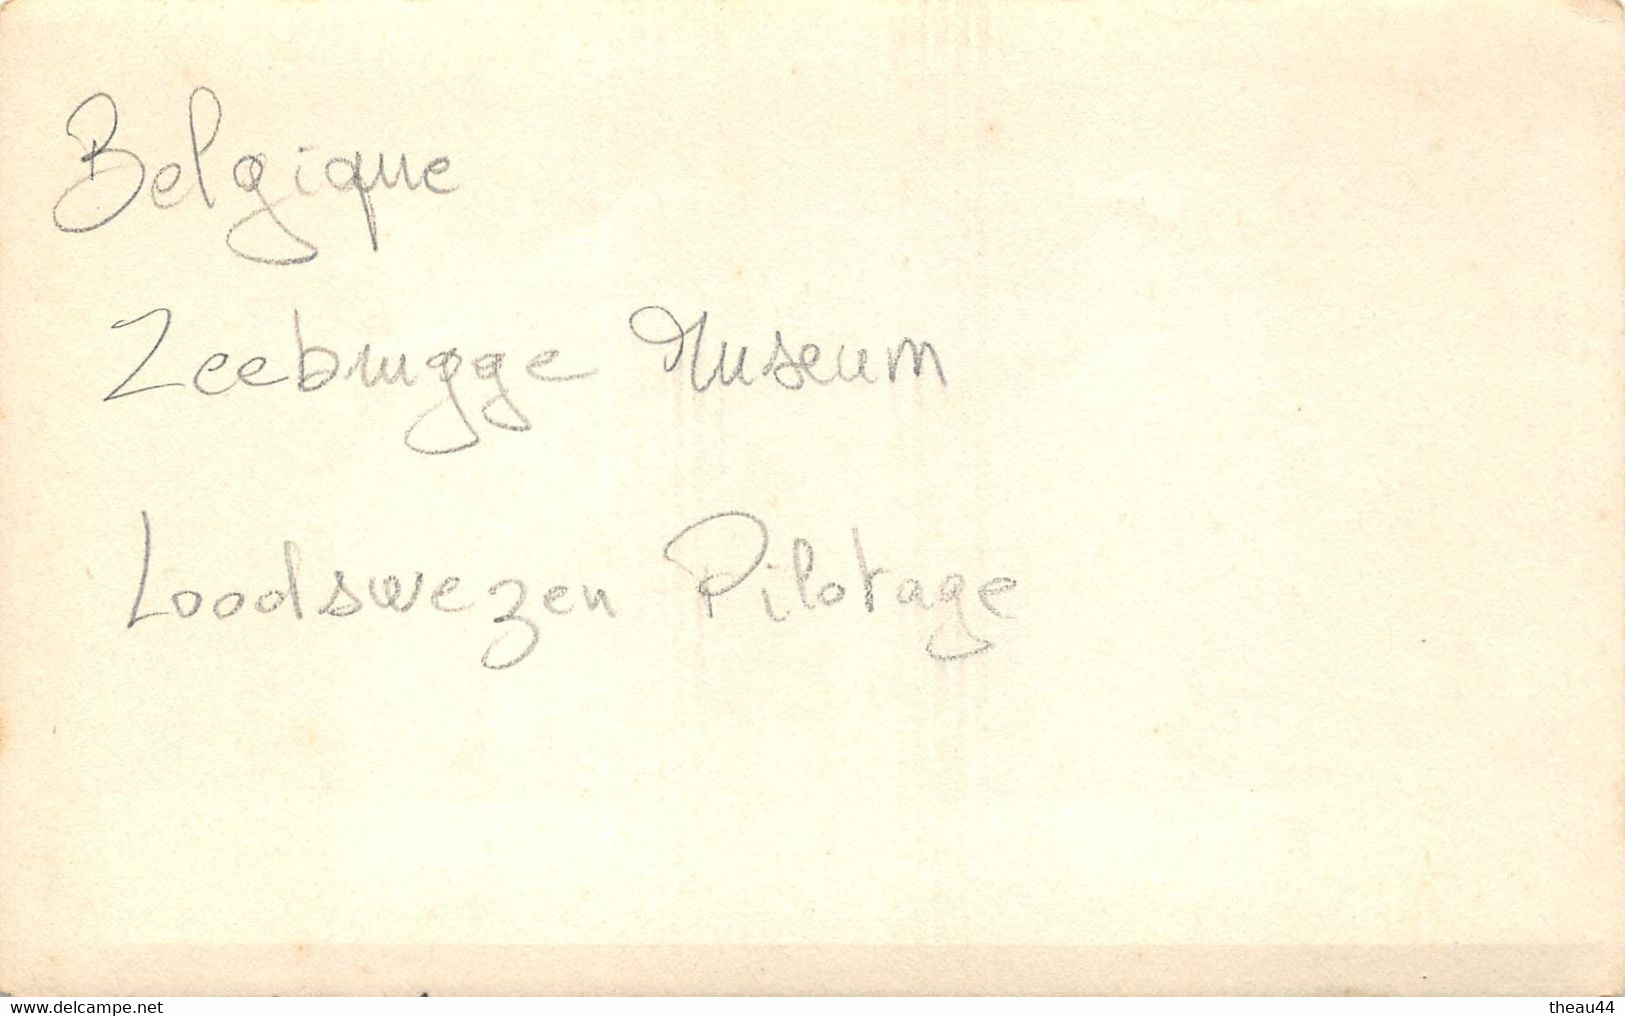 Belgique
Zeebrugge Museum
Loodswezen Pilotage
www.delcampe.net theau44